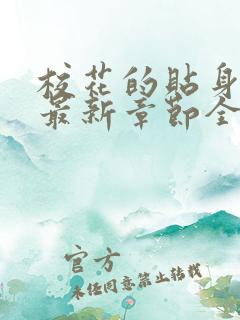 校花的贴身
最新章节全
官方
未经同意禁止转载